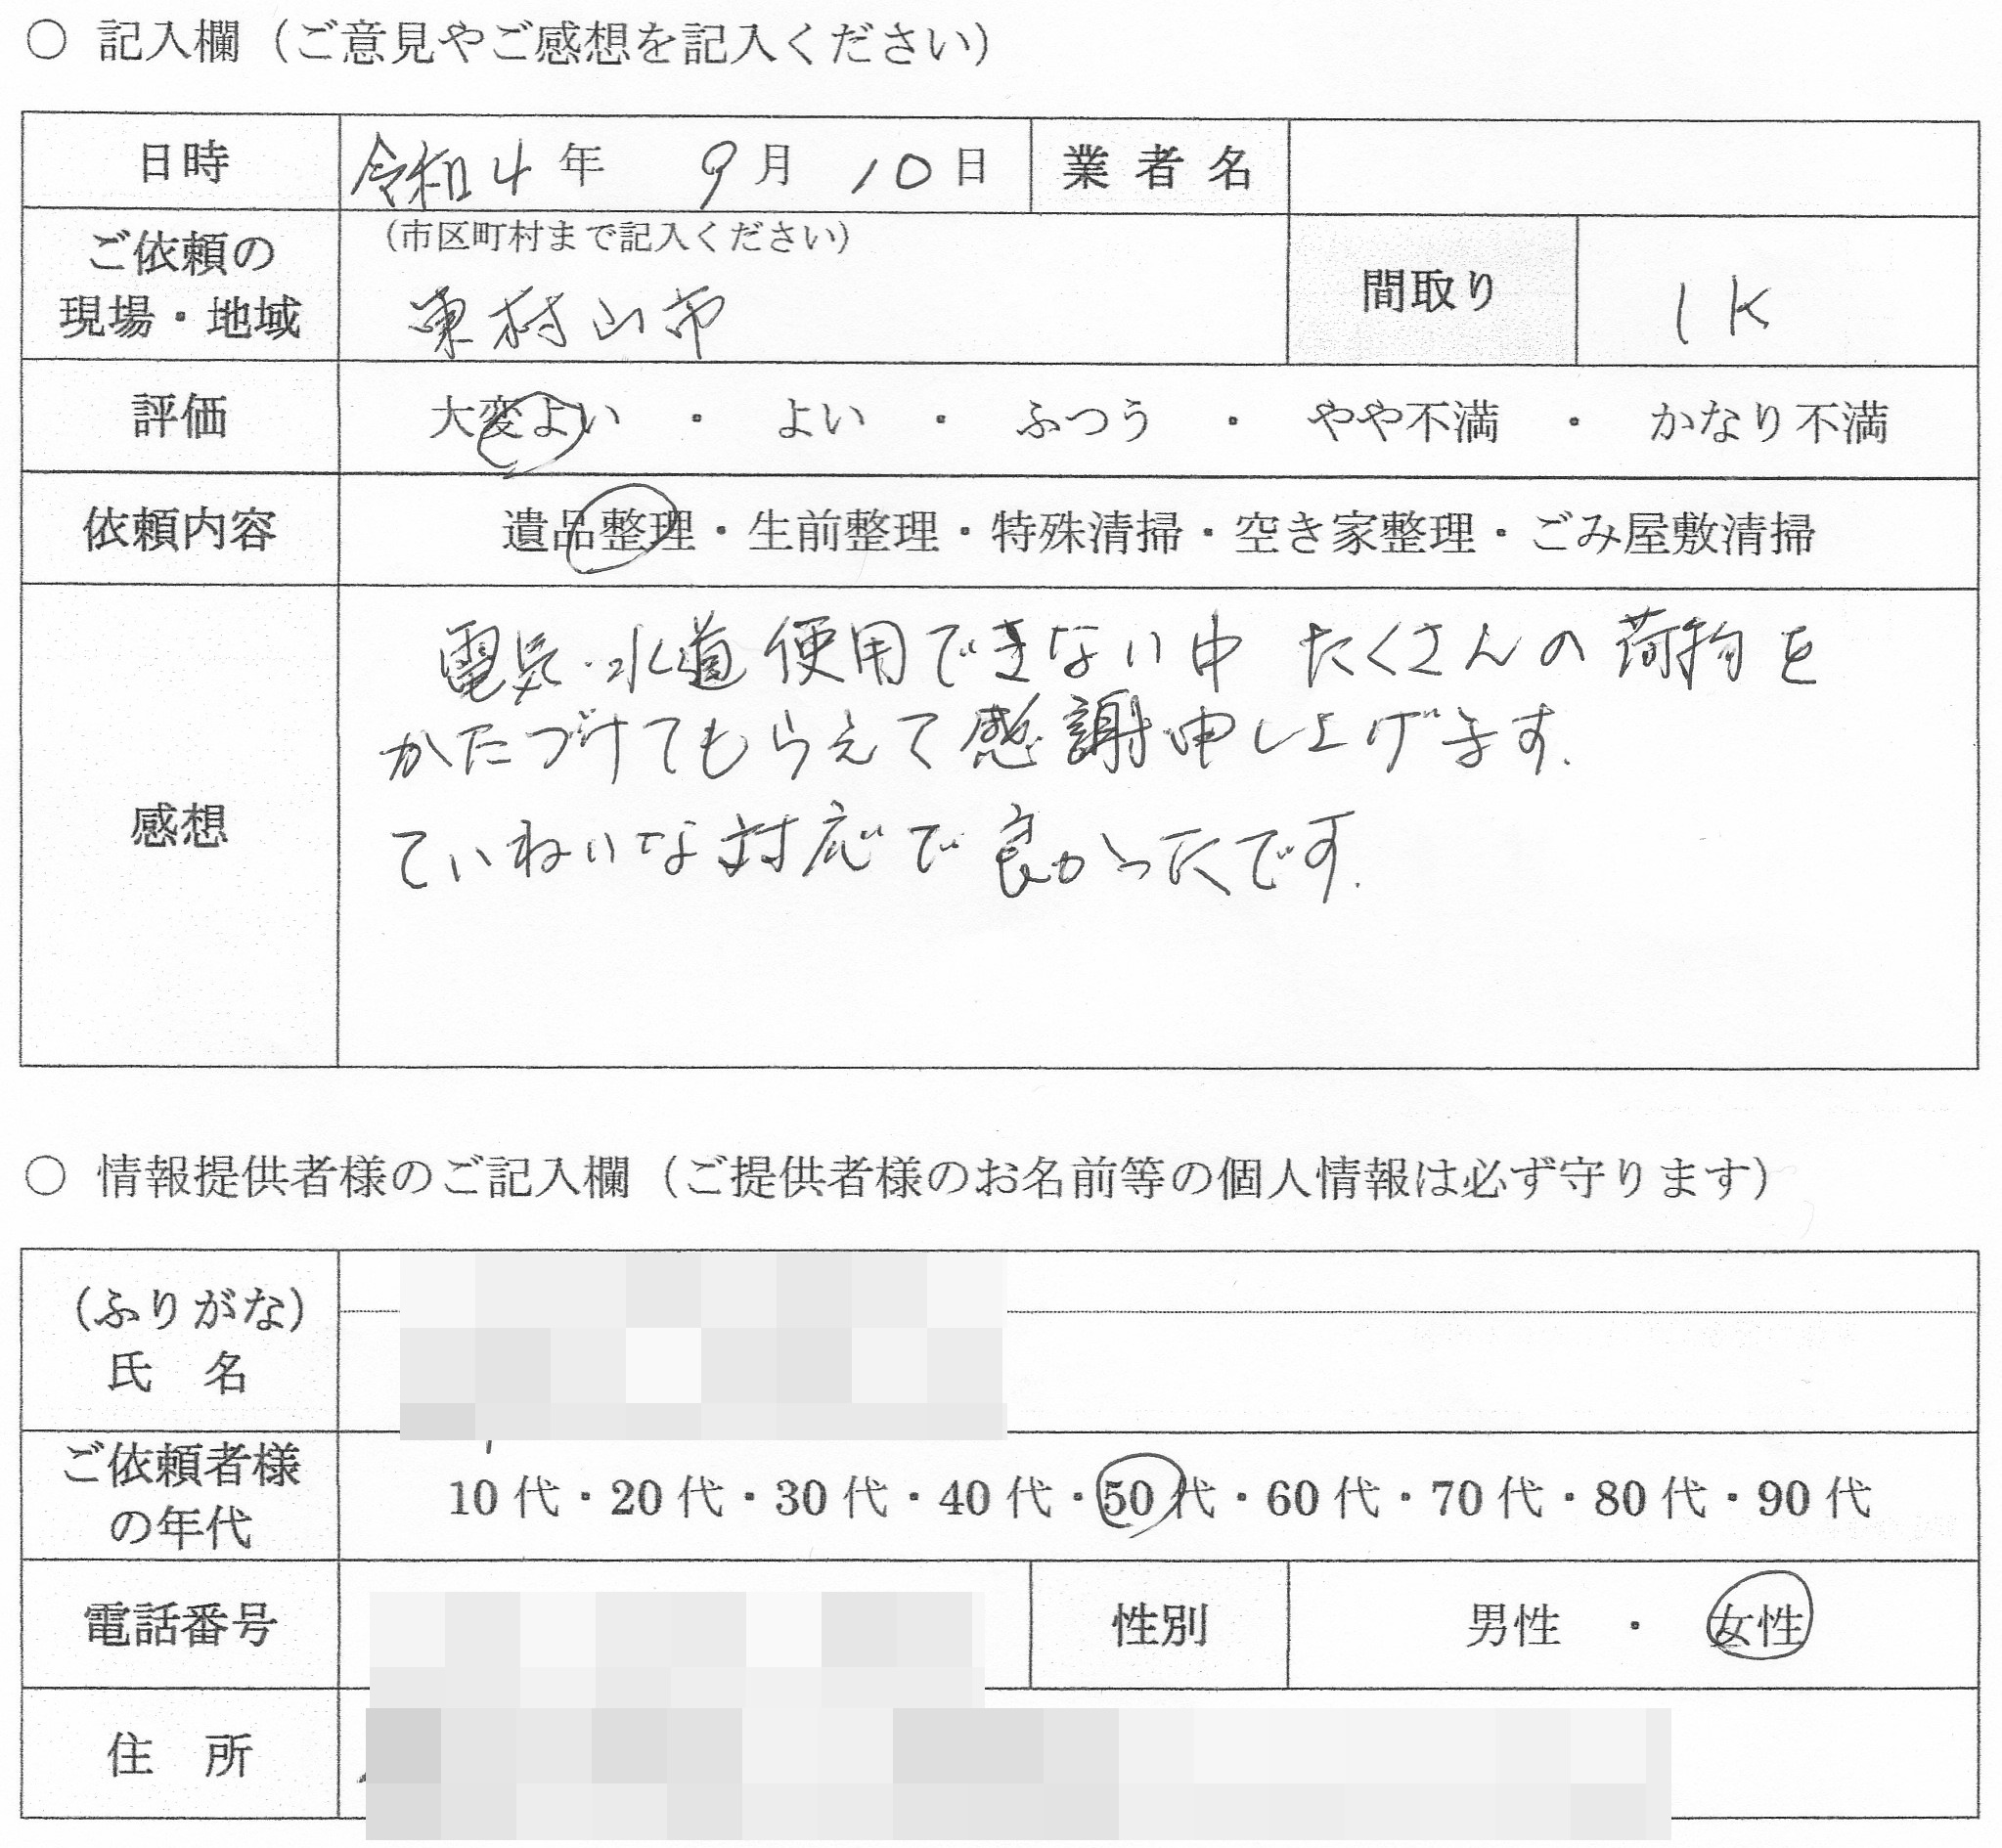 ○ 記入欄（ご意見やご感想を記入ください）
日時 令和4年 9月 10日 業者名
ご依頼の現場・地域 （市区町村まで記入ください） 東村山市 間取り 1K
評価 大変よい ・ よい ・ ふつう ・ やや不満 ・ かなり不満
依頼内容 遺品整理・生前整理・特殊清掃・空き家整理・ごみ屋敷清掃
感想
電気・水道使用できない中 たくさんの荷物を
かたづけてもらえて感謝申し上げます.
ていねいな対応で良かったです.
○ 情報提供者様のご記入欄（ご提供者様のお名前等の個人情報は必ず守ります）
（ふりがな）
氏 名
ご依頼者様の年代 10代・20代・30代・40代・50代・60代・70代・80代・90代
電話番号 性別 男性 ・ 女性
住 所